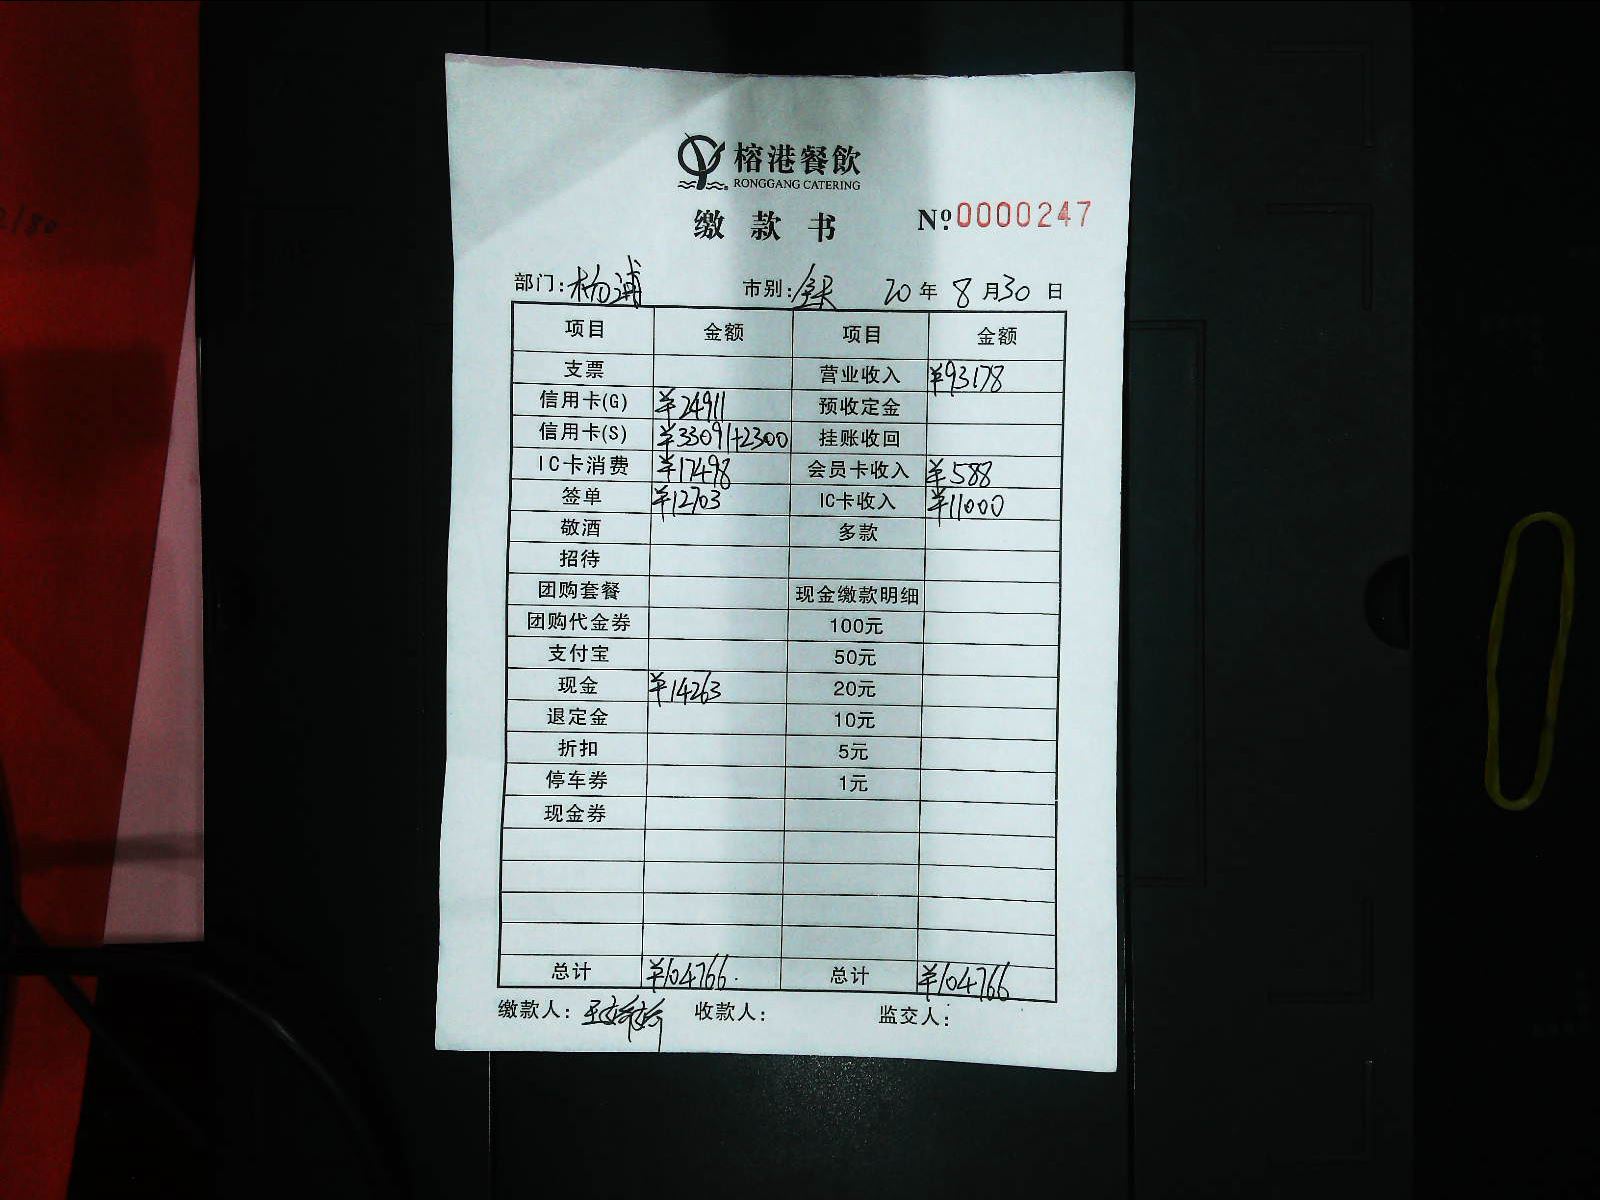 榕港餐飲
RONGGANG CATERING
缴款书 №0000247
部门:杨浦 市别: 20年8月30日
项目 金额 项目 金额
支票 营业收入 ¥93178
信用卡(G) ¥24911 预收定金
信用卡(S) ¥33091+2300 挂账收回
IC卡消费 ¥17498 会员卡收入 ¥588
签单 ¥12703 IC卡收入 ¥11000
敬酒 多款
招待
团购套餐 现金缴款明细
团购代金券 100元
支付宝 50元
现金 ¥14263 20元
退定金 10元
折扣 5元
停车券 1元
现金券
总计 ¥104766. 总计 ¥104766
缴款人: 收款人: 监交人: